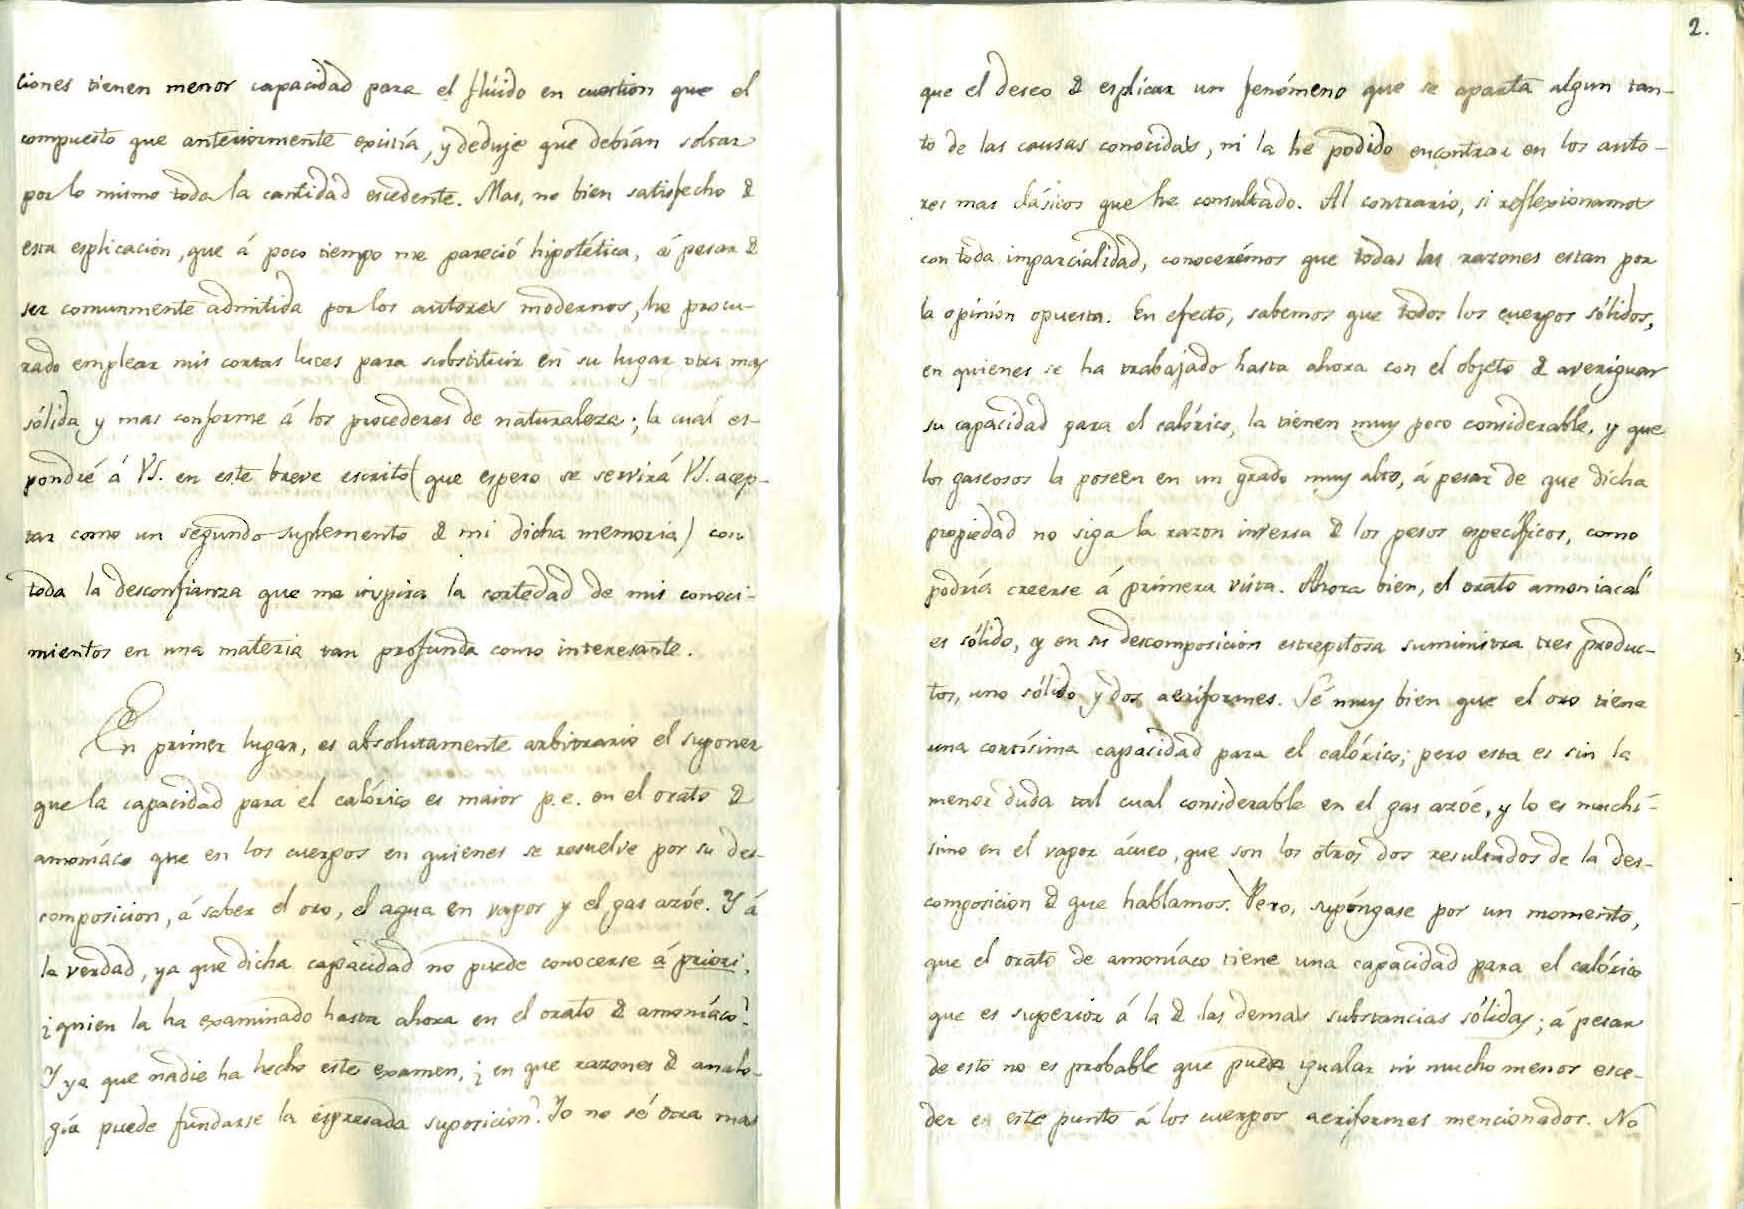 ciones tienen menor capacidad para el flúido en cuestion que el
compuesto que anteriormente existía, y deduje que debían soltar
por lo mismo toda la cantidad escedente. Mas, no bien satisfecho d
esta esplicacion, que á poco tiempo me pareció hipotética, á pesar d
ser comunmente admitida por los autores modernos, he procu-
rado emplear mis cortas luces para substituir en su lugar otra mas
sólida y mas conforme á los procederes de naturaleza; la cual es-
pondré á VS. en este breve escrito (que espero se servirá VS. acep-
tar como un segundo suplemento d mi dicha memoria) con
toda la desconfianza que me inspira la cortedad de mis conoci-
mientos en una materia tan profunda como interesante.
En primer lugar, es absolutamente arbitrario el suponer
que la capacidad para el calórico es maior p.e. en el orato d
amoníaco que en los cuerpos en quienes se resuelve por su des-
composicion, á saber el oro, el agua en vapor y el gas azóe. Y á
la verdad, ya que dicha capacidad no puede conocerse á priori,
¿quien la ha examinado hasta ahora en el orato d amoníaco?
Y ya que nadie ha hecho este examen, ¿en que razones d analo-
gía puede fundarse la espresada suposicion? Yo no sé otra mas
2.
que el deseo d esplicar un fenómeno que se aparta algun tan-
to de las causas conocidas, ni la he podido encontrar en los auto-
res mas clásicos que he consultado. Al contrario, si reflexionamos
con toda imparcialidad, conocerémos que todas las razones estan por
la opinión opuesta. En efecto, sabemos que todos los cuerpos sólidos,
en quienes se ha trabajado hasta ahora con el objeto d averiguar
su capacidad para el calórico, la tienen muy poco considerable, y que
los gaseosos la poseen en un grado muy alto, á pesar de que dicha
propiedad no siga la razon inversa d los pesos específicos, como
podría creerse á primera vista. Ahora bien, el orato amoniacal
es sólido, y en su descomposicion estrepitosa suministra tres produc-
tos, uno sólido y dos aeriformes. Sé muy bien que el oro tiene
una cortísima capacidad para el calórico; pero esta es sin la
menor duda tal cual considerable en el gas azóe, y lo es muchí-
simo en el vapor ácueo, que son los otros dos resultados de la des-
composicion d que hablamos. Pero, supóngase por un momento,
que el orato de amoníaco tiene una capacidad para el calórico
que es superior á la d las demas substancias sólidas; á pesar
de esto no es probable que pueda igualar ni mucho menos esce-
der en este punto á los cuerpos aeriformes mencionados. No